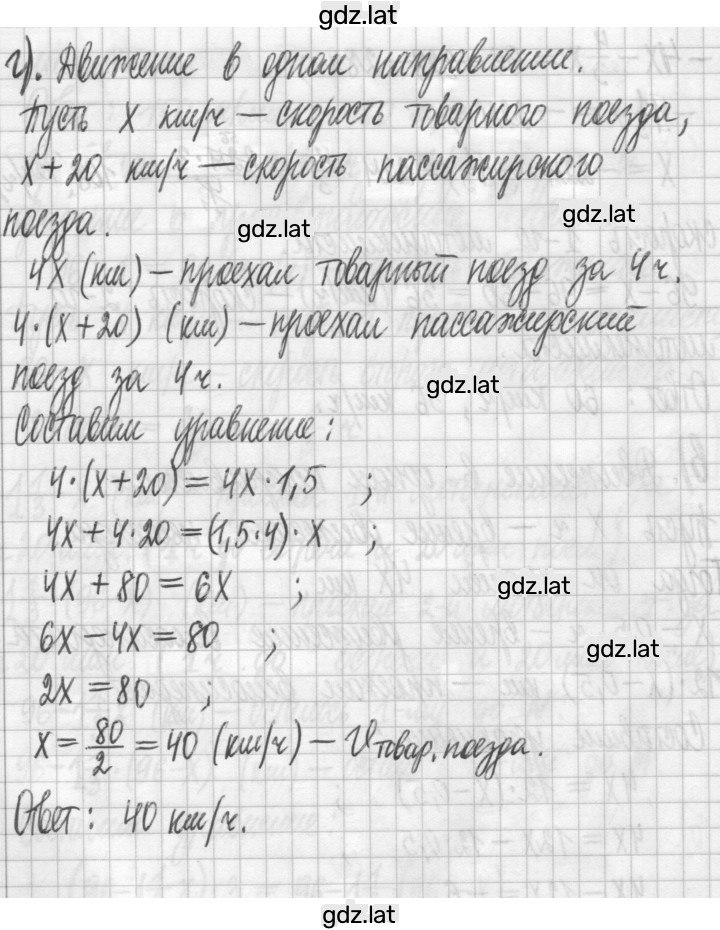 gdz.lat
г). Движение в одном направлении.
Пусть x км/ч — скорость товарного поезда,
x + 20 км/ч — скорость пассажирского
поезда.
gdz.lat
gdz.lat
4x (км) — проехал товарный поезд за 4 ч.
4·(x+20) (км) — проехал пассажирский
поезд за 4 ч.
gdz.lat
Составим уравнение:
4·(x+20) = 4x·1,5 ;
4x + 4·20 = (1,5·4)·x ;
4x + 80 = 6x ;
gdz.lat
6x − 4x = 80 ;
gdz.lat
2x = 80 ;
x = 80/2 = 40 (км/ч) — V товар. поезда.
Ответ: 40 км/ч.
gdz.lat